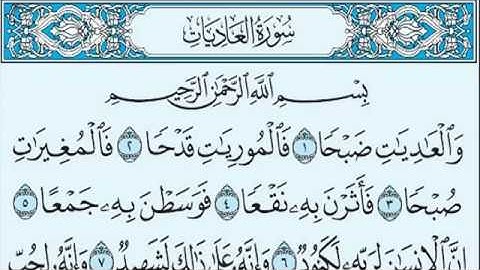 سُورَةُ العَادِيَاتِ
بِسْمِ ٱللَّهِ ٱلرَّحْمَٰنِ ٱلرَّحِيمِ
وَٱلْعَٰدِيَٰتِ ضَبْحًا ١ فَٱلْمُورِيَٰتِ قَدْحًا ٢ فَٱلْمُغِيرَٰتِ
صُبْحًا ٣ فَأَثَرْنَ بِهِۦ نَقْعًا ٤ فَوَسَطْنَ بِهِۦ جَمْعًا ٥
إِنَّ ٱلْإِنسَٰنَ لِرَبِّهِۦ لَكَنُودٌ ٦ وَإِنَّهُۥ عَلَىٰ ذَٰلِكَ لَشَهِيدٌ ٧ وَإِنَّهُۥ لِحُبِّ